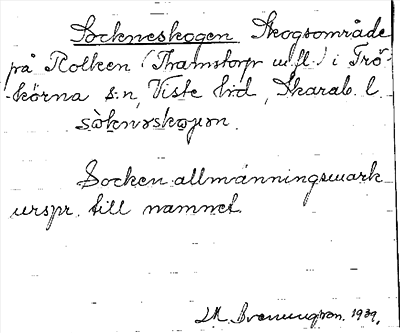 Sockneskogen Skogsområde
på Rolken (Thamstorp m.fl.) i Trö-
-körna s:n, Viste hd, Skarab. l.
Socken allmänningsmark
urspr. till namnet
Brenningson. 1939.